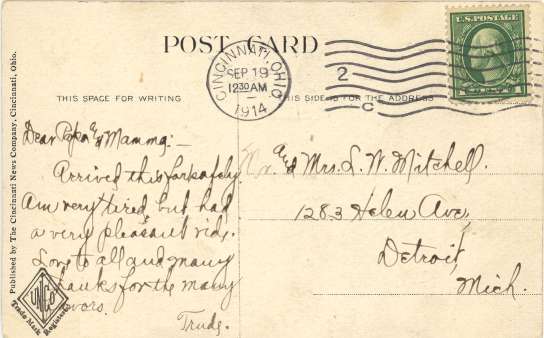 POST CARD
CINCINNATI, OHIO
SEP 19
12 30 AM
1914
2
C
U.S. POSTAGE
THIS SPACE FOR WRITING
THIS SIDE IS FOR THE ADDRESS
Dear Papa & Mamma:—
Arrived this far safely.
Am very tired, but had
a very pleasant ride.
Love to all and many
thanks for the many
favors.
Trude.
& Mrs. L. W. Mitchell.
1283 Helen Ave,
Detroit,
Mich.
Published by The Cincinnati News Company, Cincinnati, Ohio.
Trade Mark
Registered